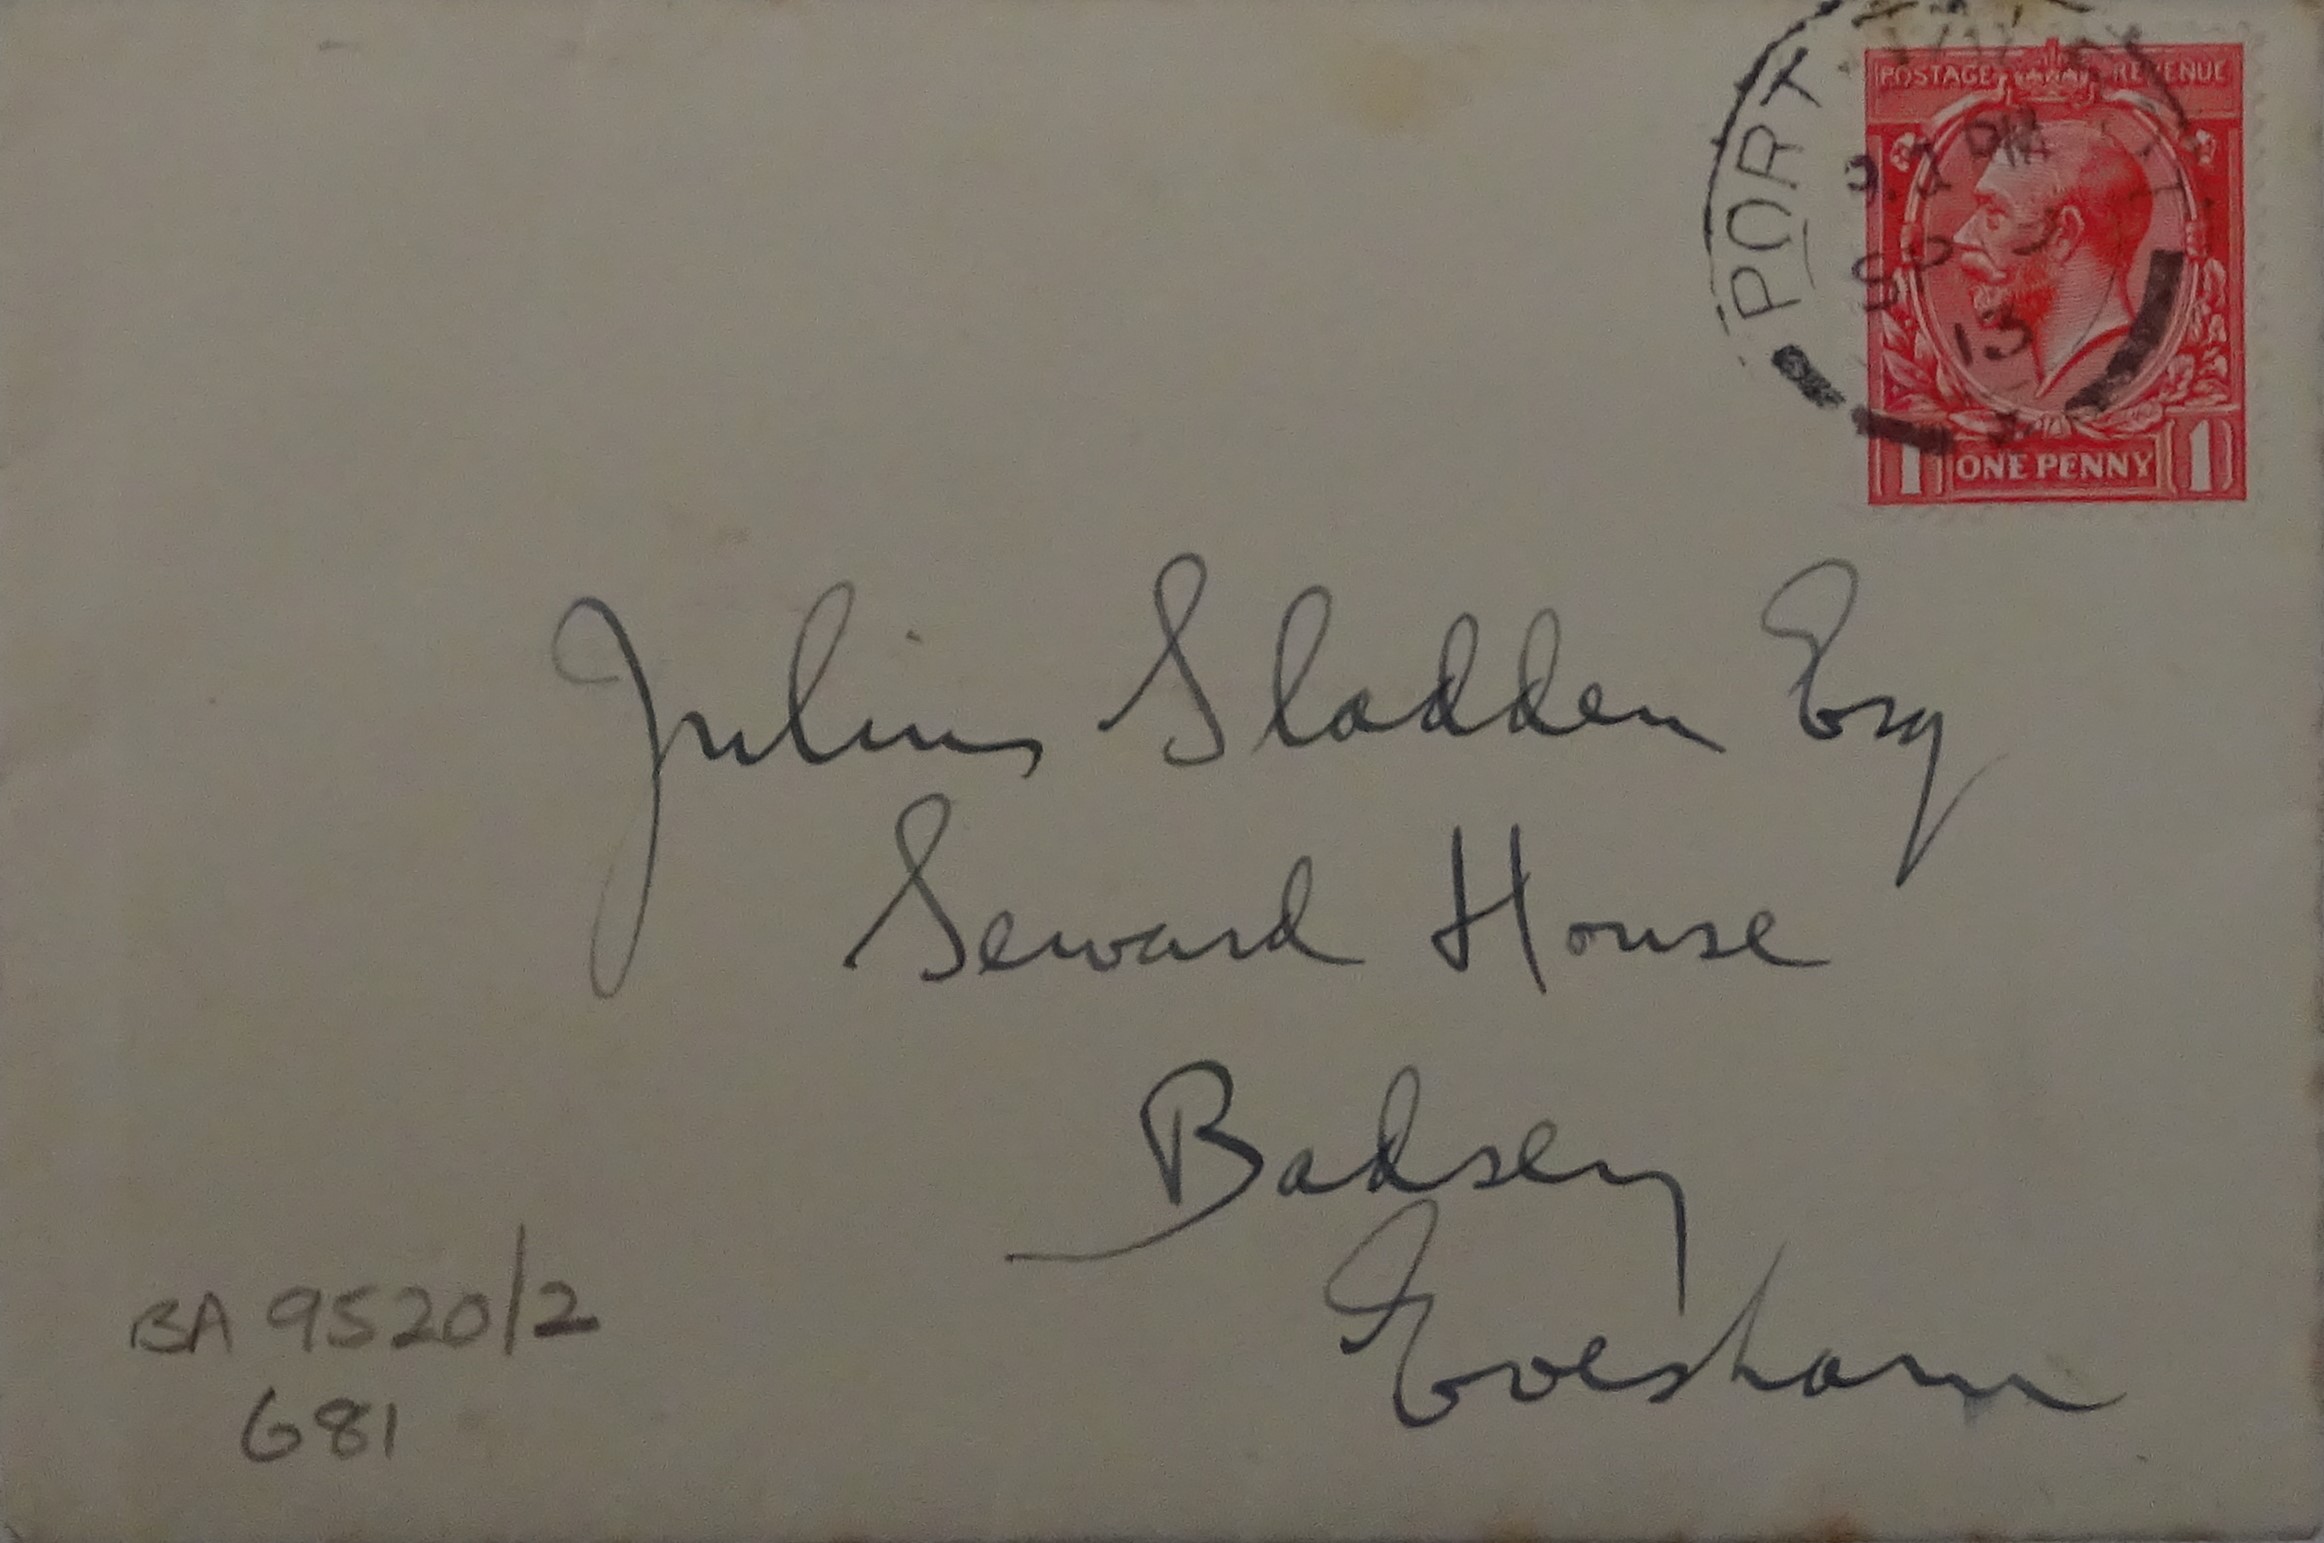 PORT
POSTAGE REVENUE
PM
SP 3
13
1 ONE PENNY 1
Julius Sladden Esq
Seward House
Badsey
Evesham
BA 9520/2
681